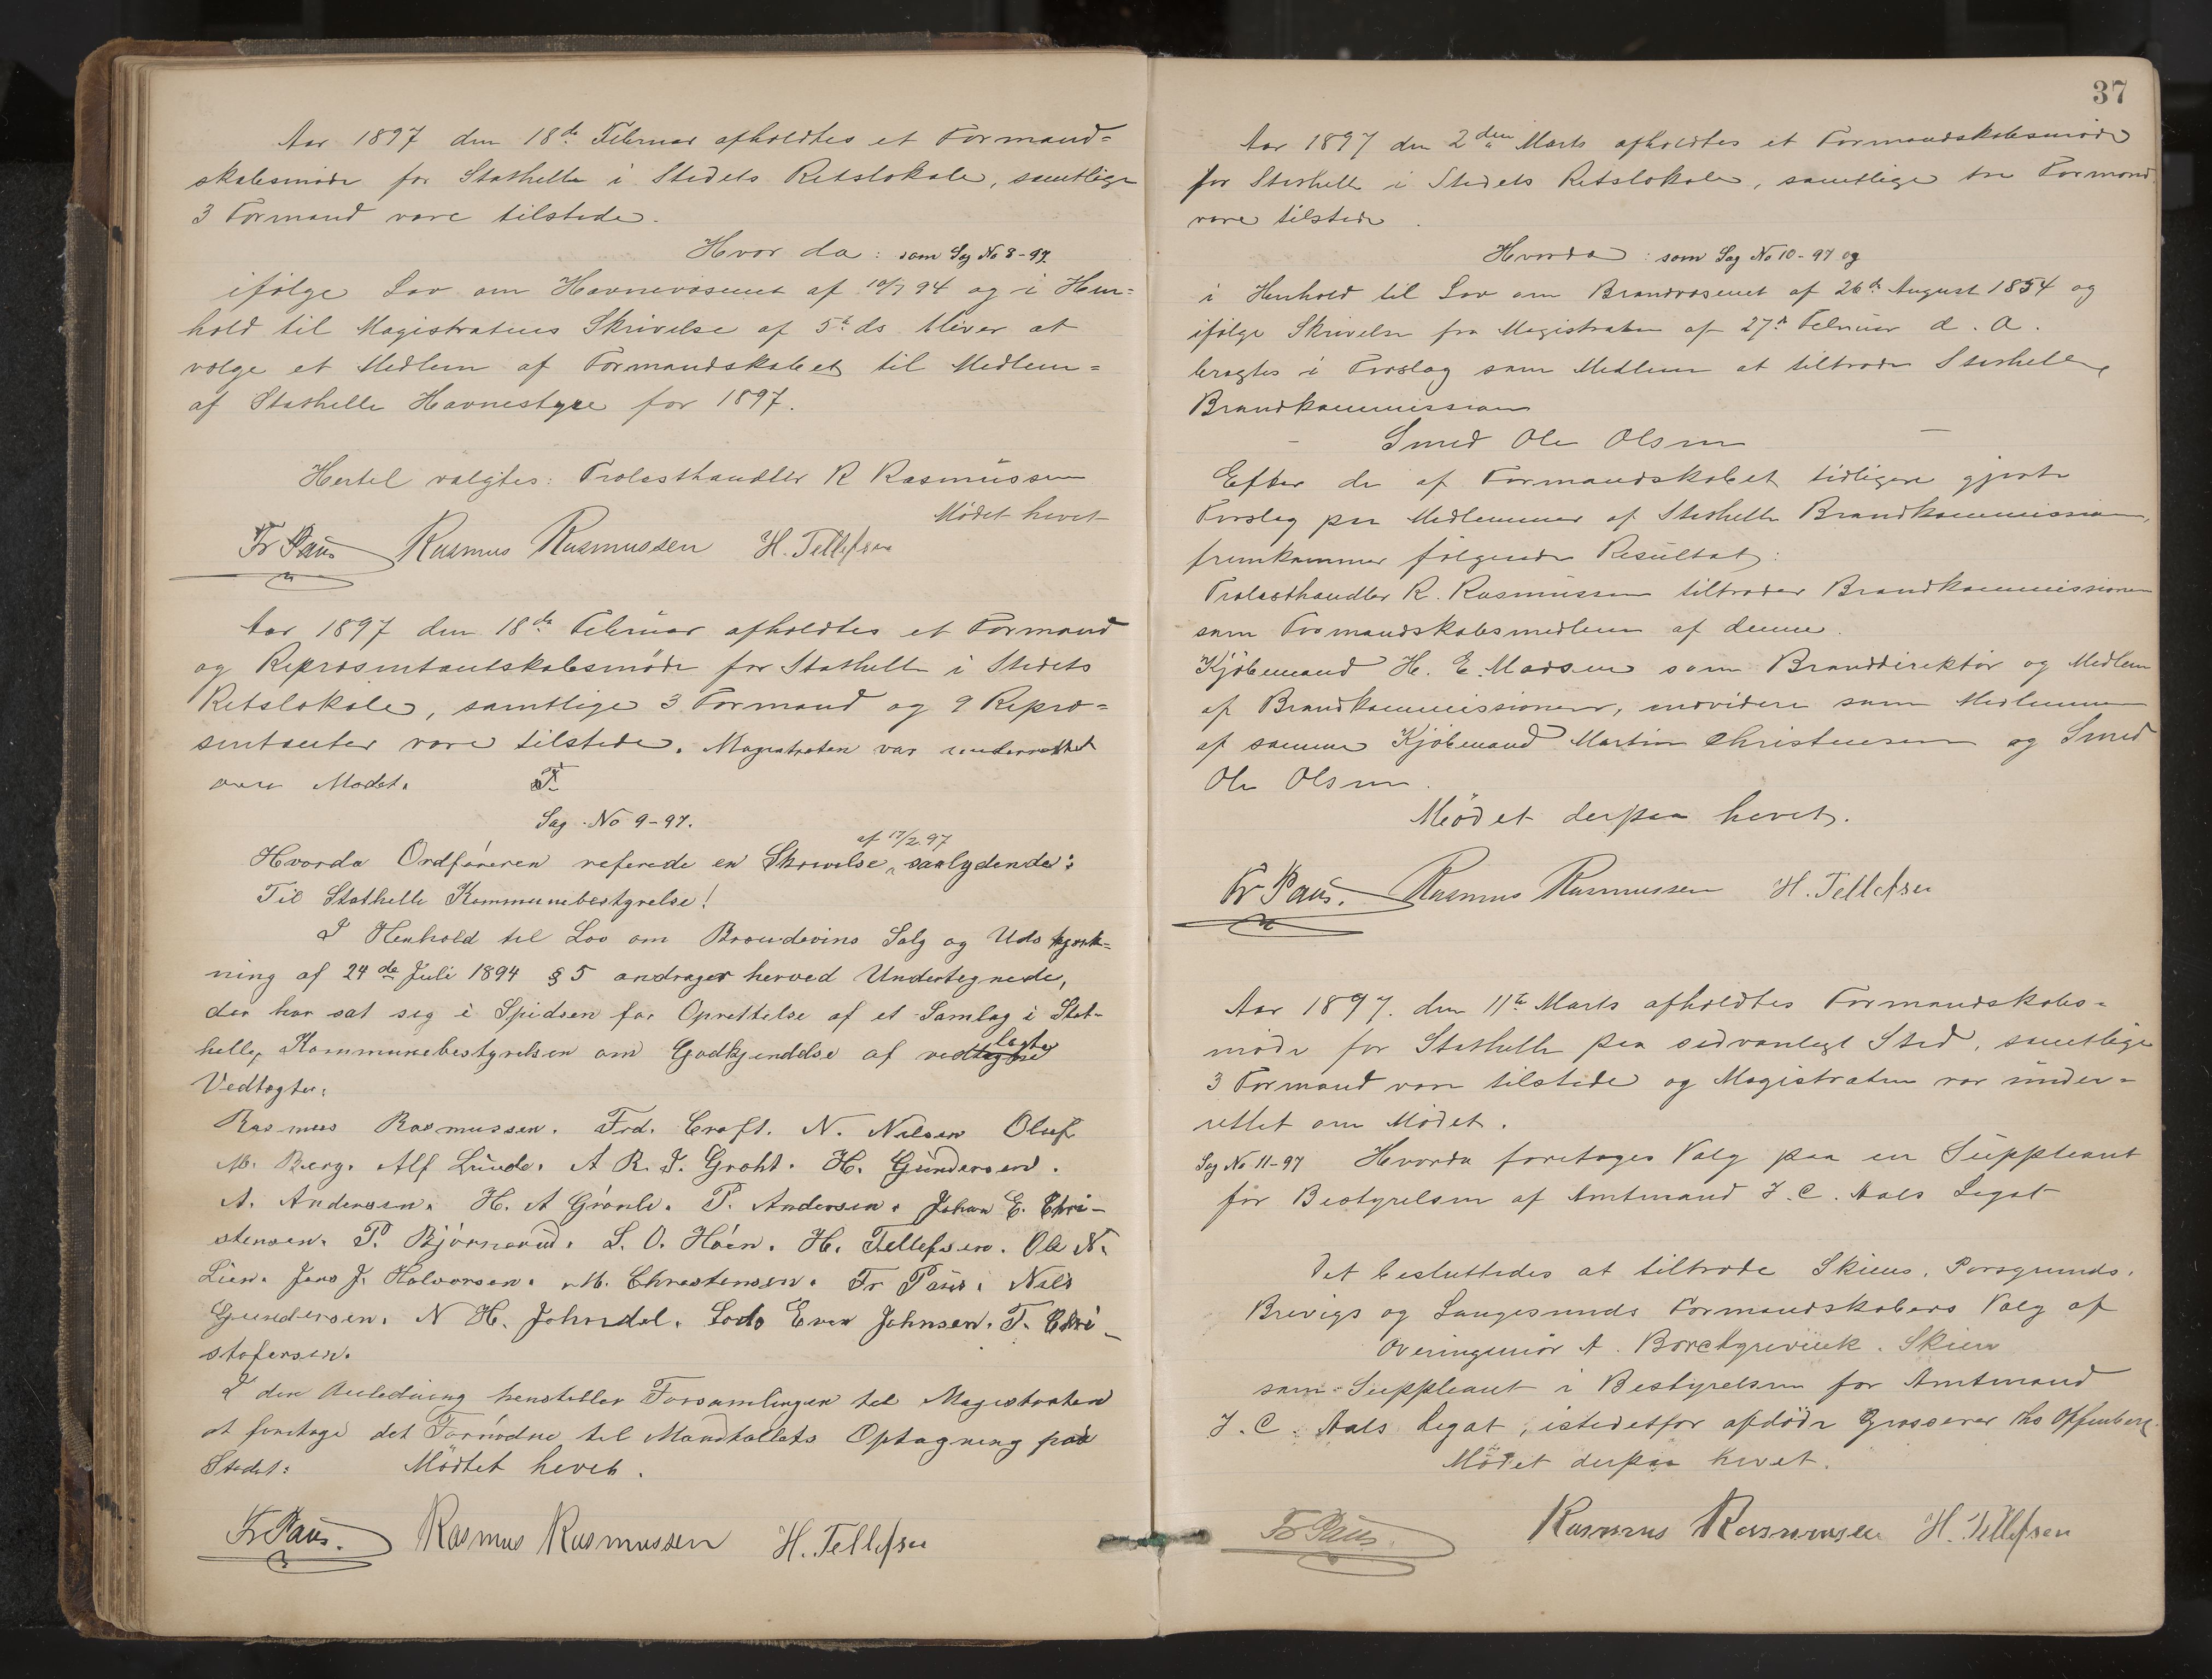 Aar 1897 den 18de Februar afholdtes et Formand=
skabsmøde for Stathelle i Stedets Retslokale, samtlige
3 Formænd vare tilstede.
Hvor da: som Sag No 8-97.
ifølge Lov om Havnevæsenet af 10/7 94 og i Hen=
hold til Magistratens Skrivelse af 5te ds bliver at
vælge et Medlem af Formandskabet til Medlem=
af Stathelle Havnestyre for 1897.
Hertil valgtes: Trælasthandler R Rasmussen
Mødet hevet
Fr Paus Rasmus Rasmussen H. Tellefsen
Aar 1897 den 18de Februar afholdtes et Formand
og Repræsentantskabsmøde for Stathelle i Stedets
Retslokale, samtlige 3 Formænd og 9 Repræ=
sentanter vare tilstede. Magistraten var underrettet
om Mødet.
Sag No 9-97.
af 17/2.97
Hvorda Ordføreren referede en Skrivelse, saalydende:
Til Stathelle Kommunebestyrelse!
I Henhold til Lov om Brændevins Salg og Udskjænk=
ning af 24de Juli 1894 § 5 andrager herved Undertegnede,
der har sat sig i Spidsen for Oprettelse af et Samlag i Stat-
helle, Kommunebestyrelsen om Godkjendelse af vedlagte
Vedtægter:
Rasmus Rasmussen. Frd. Craft. N. Nilsen Oluf
M. Berg. Alf Lunde. A R. J. Groht. H. Gundersen.
A. Andersen. H. A Grönli. P. Andersen. Johan E. Chri-
stensen. P. Björnerud. L. O. Höen. H. Tellefsen. Ole N.
Lien. Jens J. Halvorsen. M. Christensen. Fr Paus. Nils
Gundersen. N H. Johndal. Lods Even Johnsen. T. Chri-
stofersen.
I den Anledning henstiller Forsamlingen til Magistraten
at foretage det Fornödne til Mandtallets Optagning paa
Stedet: Mödtet hevet.
Fr Paus. Rasmus Rasmussen H. Tellefsen
37
Aar 1897 den 2den Marts afholdtes et Formandskabsmøde
for Stathelle i Stedets Retslokale, samtlige tre Formænd
vare tilstede.
Hvorda: som Sag No 10-97 og
i Henhold til Lov om Brandvæsenet af 26de August 1854 og
ifølge Skrivelse fra Magistraten af 27de Februar d. A.
bragtes i Forslag som Medlem at tiltræde Stathelle
Brandkommission
- Smed Ole Olsen -
Efter de af Formandskabet tidligere gjorte
Forslag paa Medlemmer af Stathelle Brandkommission,
fremkommer følgende Resultat:
Trælasthandler R. Rasmussen tiltræder Brandkommissionen
som Formandskabsmedlem af denne.
Kjøbmand H. E. Madsen som Branddirektør og Medlem
af Brandkommissionen, endvidere som Medlemmer
af samme Kjøbmand Martin Christensen og Smed
Ole Olsen.
Mødet derpaa hevet.
Fr Paus. Rasmus Rasmussen H. Tellefsen
Aar 1897. den 11te Marts afholdtes Formandskabs=
møde for Stathelle paa sædvanligt Sted, samtlige
3 Formænd vare tilstede og Magistraten var under=
rettet om Mødet.
Sag No 11-97 Hvorda foretages Valg paa en Suppleant
for Bestyrelsen af Amtmand J. C. Aals Legat
Det besluttedes at tiltræde Skiens, Porsgrunds,
Brevigs og Langesunds Formandskabers Valg af
Overingeniør A. Borchgrevink. Skien
som Suppleant i Bestyrelsen for Amtmand
J. C. Aals Legat, istedetfor afdøde Grosserer Ths Offenberg.
Mødet derpaa hevet.
Fr Paus. Rasmus Rasmussen H. Tellefsen